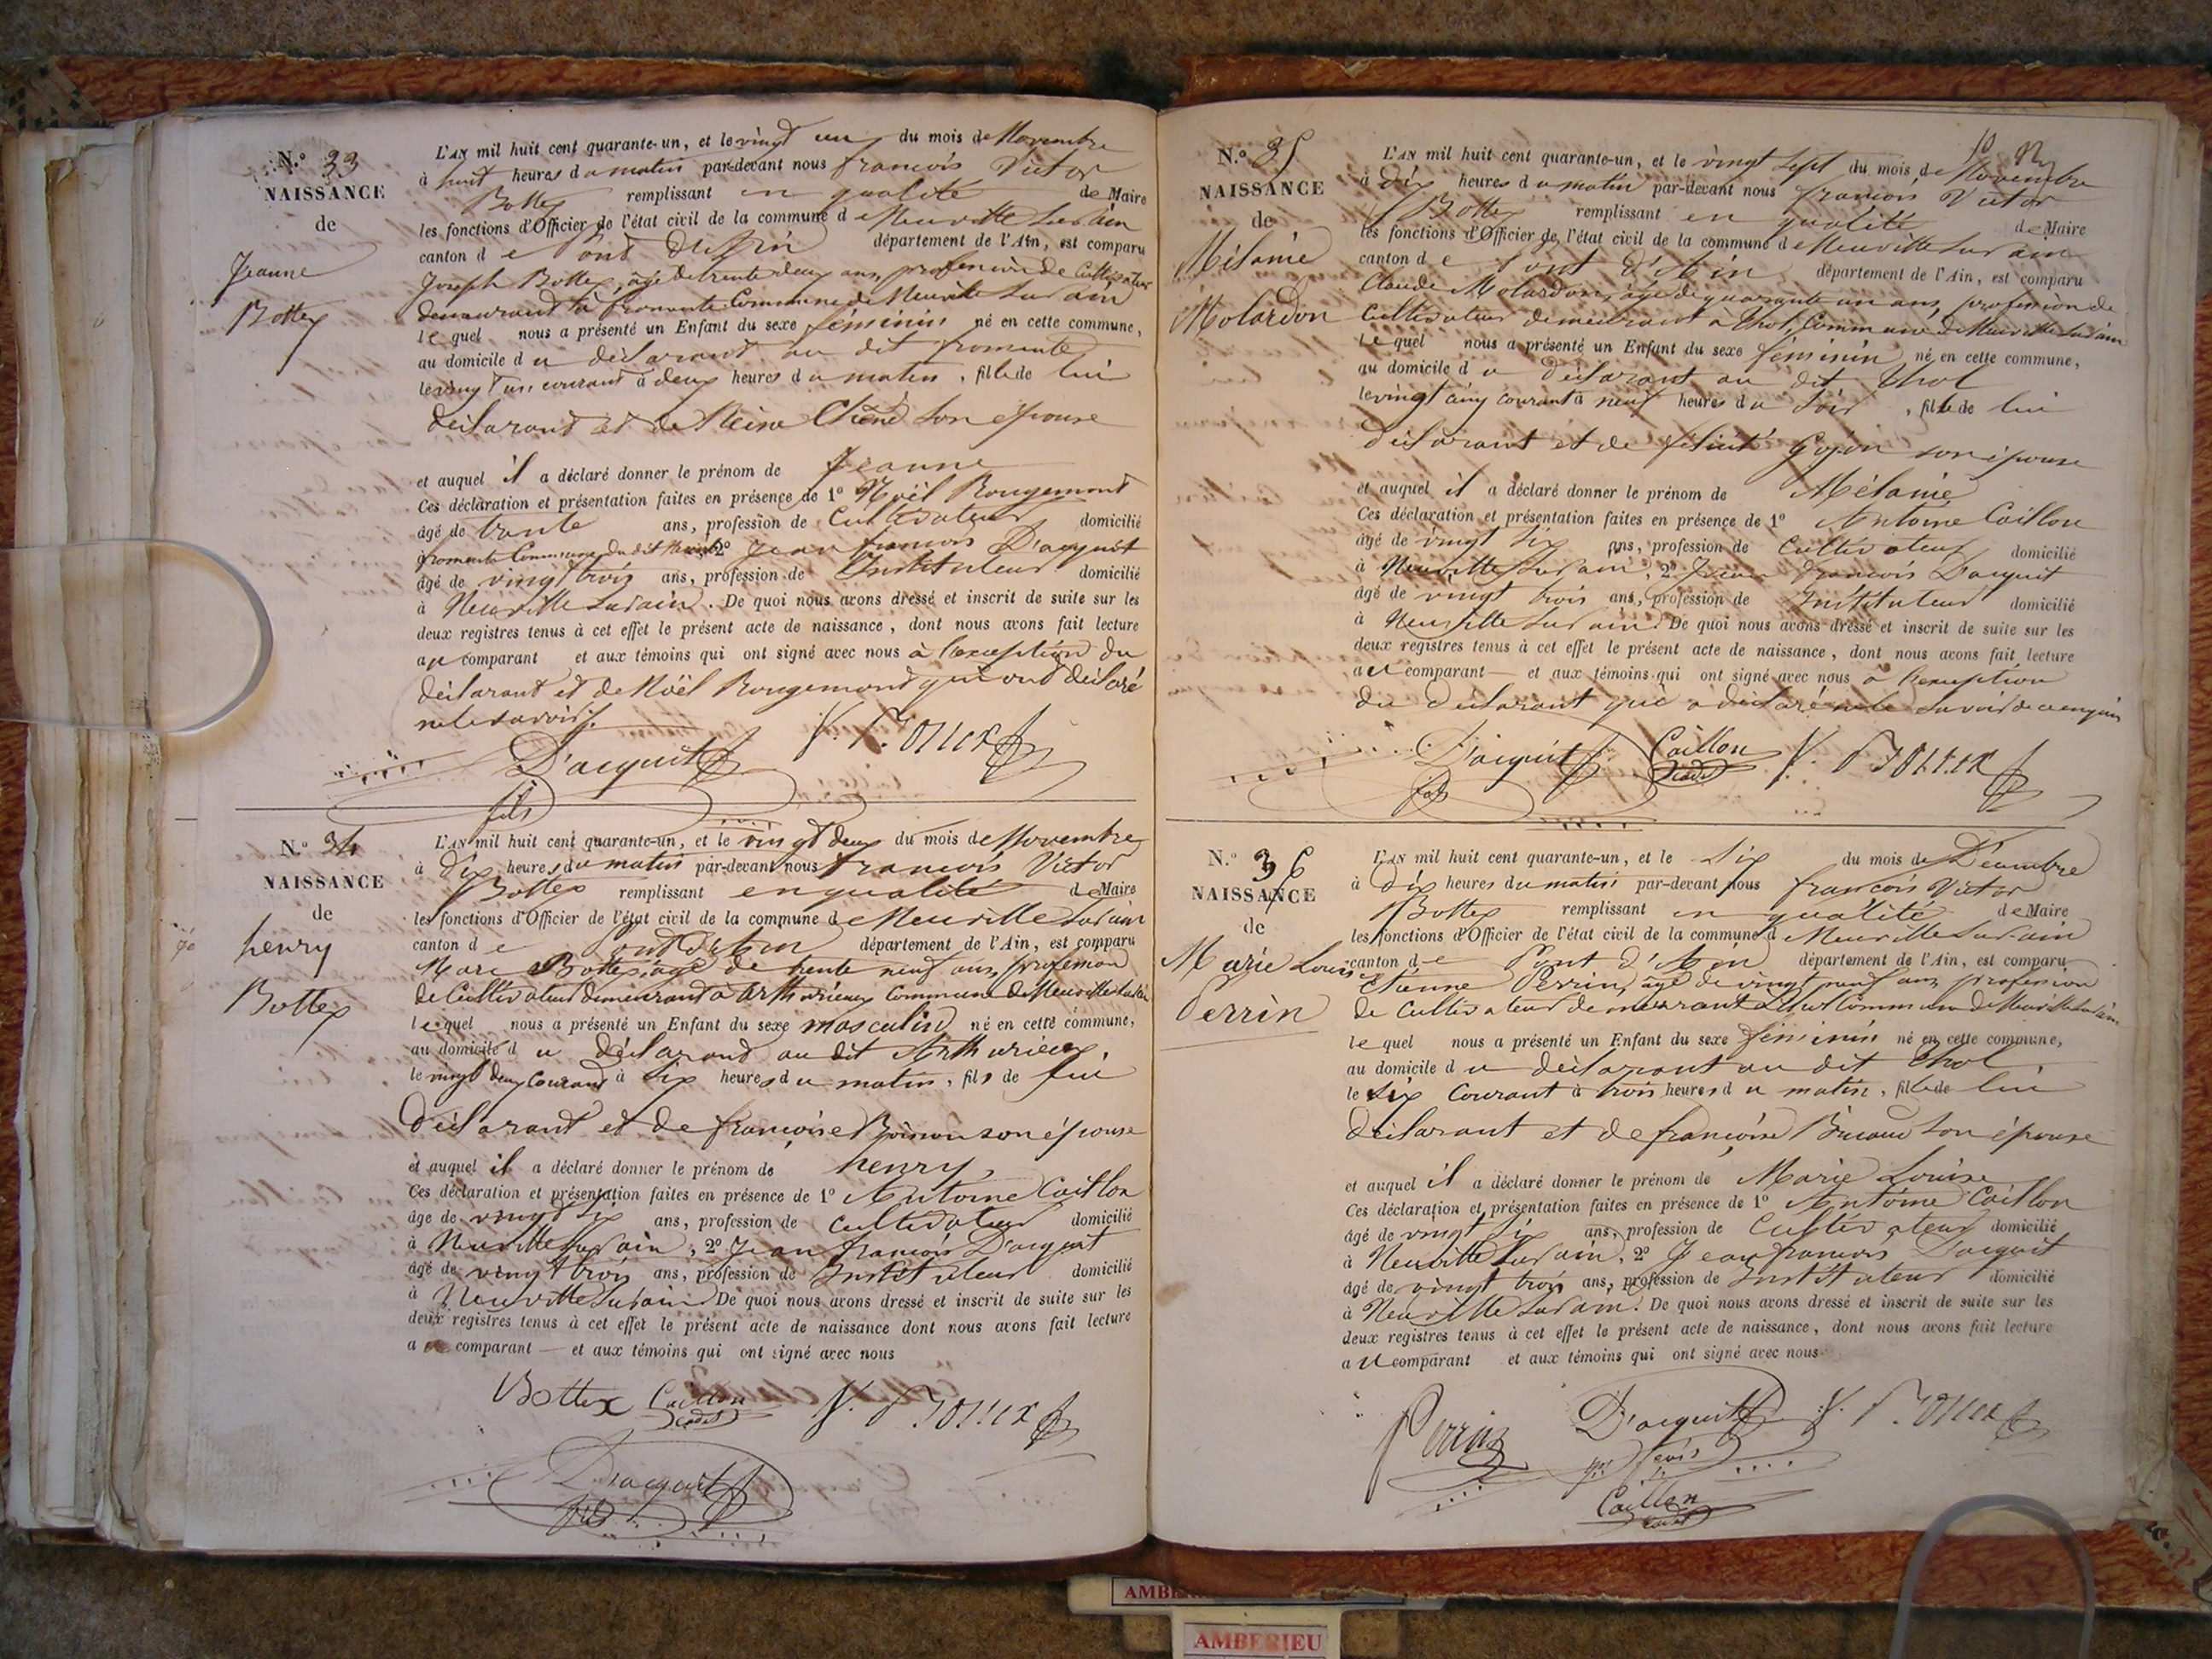 N.° 33
NAISSANCE
de
Jeanne
Bottex
L'AN mil huit cent quarante-un, et le vingt un du mois de Novembre
à huit heures du matin par-devant nous françois Victor
Bottex remplissant en qualité de Maire
les fonctions d'Officier de l'état civil de la commune de Neuville Sur ain
canton de Pont d'ain département de l'Ain, est comparu
Joseph Bottex, âgé de trente deux ans, profession de Cultivateur
demeurant à fromente Commune de Neuville Sur ain
lequel nous a présenté un Enfant du sexe féminin né en cette commune,
au domicile du déclarant au dit fromente
le vingt un courant à deux heures du matin, fille de lui
déclarant et de Reine Chêne son épouse
et auquel il a déclaré donner le prénom de Jeanne
Ces déclaration et présentation faites en présence de 1° Noël Rougemont
âgé de trente ans, profession de Cultivateur domicilié
à fromente Commune du dit 2° Jean françois D'acquit
âgé de vingt trois ans, profession de Instituteur domicilié
à Neuville Sur ain. De quoi nous avons dressé et inscrit de suite sur les
deux registres tenus à cet effet le présent acte de naissance, dont nous avons fait lecture
au comparant et aux témoins qui ont signé avec nous à l'exception du
déclarant et de Noël Rougemont qui ont déclaré
ne le savoir.
D'acquit fils V. Bottex
N.° 34
NAISSANCE
de
henry
Bottex
L'AN mil huit cent quarante-un, et le vingt deux du mois de Novembre
à dix heures du matin par-devant nous francois Victor
Bottex remplissant en qualité de Maire
les fonctions d'Officier de l'état civil de la commune de Neuville Sur ain
canton de Pont d'Ain département de l'Ain, est comparu
Marc Bottex, âgé de trente neuf ans, profession
de Cultivateur demeurant à Arthurieux Commune de Neuville Sur ain
lequel nous a présenté un Enfant du sexe masculin né en cette commune,
au domicile du déclarant au dit Arthurieux,
le vingt deux courant à six heures du matin, fils de lui
déclarant et de françoise son épouse
et auquel il a déclaré donner le prénom de henry,
Ces déclaration et présentation faites en présence de 1° Antoine Caillon
âgé de vingt six ans, profession de cultivateur domicilié
à Neuville Sur ain, 2° Jean françois D'acquit
âgé de vingt trois ans, profession de Instituteur domicilié
à Neuville Sur ain De quoi nous avons dressé et inscrit de suite sur les
deux registres tenus à cet effet le présent acte de naissance dont nous avons fait lecture
au comparant — et aux témoins qui ont signé avec nous
Bottex Caillon cadet V. Bottex
D'acquit fils
N.° 35
NAISSANCE
de
Mélanie
Molardon
L'AN mil huit cent quarante-un, et le vingt sept du mois de Novembre
à dix heures du matin par-devant nous françois Victor
Bottex remplissant en qualité de Maire
les fonctions d'Officier de l'état civil de la commune de Neuville Sur ain
canton de Pont d'Ain département de l'Ain, est comparu
Claude Molardon, âgé de quarante un ans, profession de
Cultivateur demeurant à Thol, Commune de Neuville Sur ain
lequel nous a présenté un Enfant du sexe féminin né en cette commune,
au domicile du déclarant au dit Thol
le vingt cinq courant à neuf heures du Soir, fille de lui
déclarant et de Goyon son épouse
et auquel il a déclaré donner le prénom de Mélanie
Ces déclaration et présentation faites en présence de 1° Antoine Caillon
âgé de vingt six ans, profession de Cultivateur domicilié
à Neuville Sur ain, 2° Jean françois D'acquit
âgé de vingt trois ans, profession de Instituteur domicilié
à Neuville Sur ain. De quoi nous avons dressé et inscrit de suite sur les
deux registres tenus à cet effet le présent acte de naissance, dont nous avons fait lecture
au comparant — et aux témoins qui ont signé avec nous à l'exception
du déclarant qui a déclaré ne le savoir de ce enquis
D'acquit fils Caillon cadet V. Bottex
N.° 36
NAISSANCE
de
Marie Louise
Perrin
L'AN mil huit cent quarante-un, et le six du mois de Décembre
à dix heures du matin par-devant nous françois Victor
Bottex remplissant en qualité de Maire
les fonctions d'Officier de l'état civil de la commune d Neuville Sur ain
canton de Pont d'Ain département de l'Ain, est comparu
étienne Perrin, âgé de vingt neuf ans, profession
de Cultivateur demeurant à Thol Commune de Neuville Sur ain
lequel nous a présenté un Enfant du sexe féminin né en cette commune,
au domicile du déclarant au dit Thol
le six Courant à trois heures du matin, fille de lui
déclarant et de françoise son épouse
et auquel il a déclaré donner le prénom de Marie Louise
Ces déclaration et présentation faites en présence de 1° Antoine Caillon
âgé de vingt six ans, profession de Cultivateur domicilié
à Neuville Sur ain, 2° Jean françois D'acquit
âgé de vingt trois ans, profession de Instituteur domicilié
à Neuville Sur ain. De quoi nous avons dressé et inscrit de suite sur les
deux registres tenus à cet effet le présent acte de naissance, dont nous avons fait lecture
au comparant et aux témoins qui ont signé avec nous
Perrin D'acquit V. Bottex
Caillon cadet
AMBERIEU